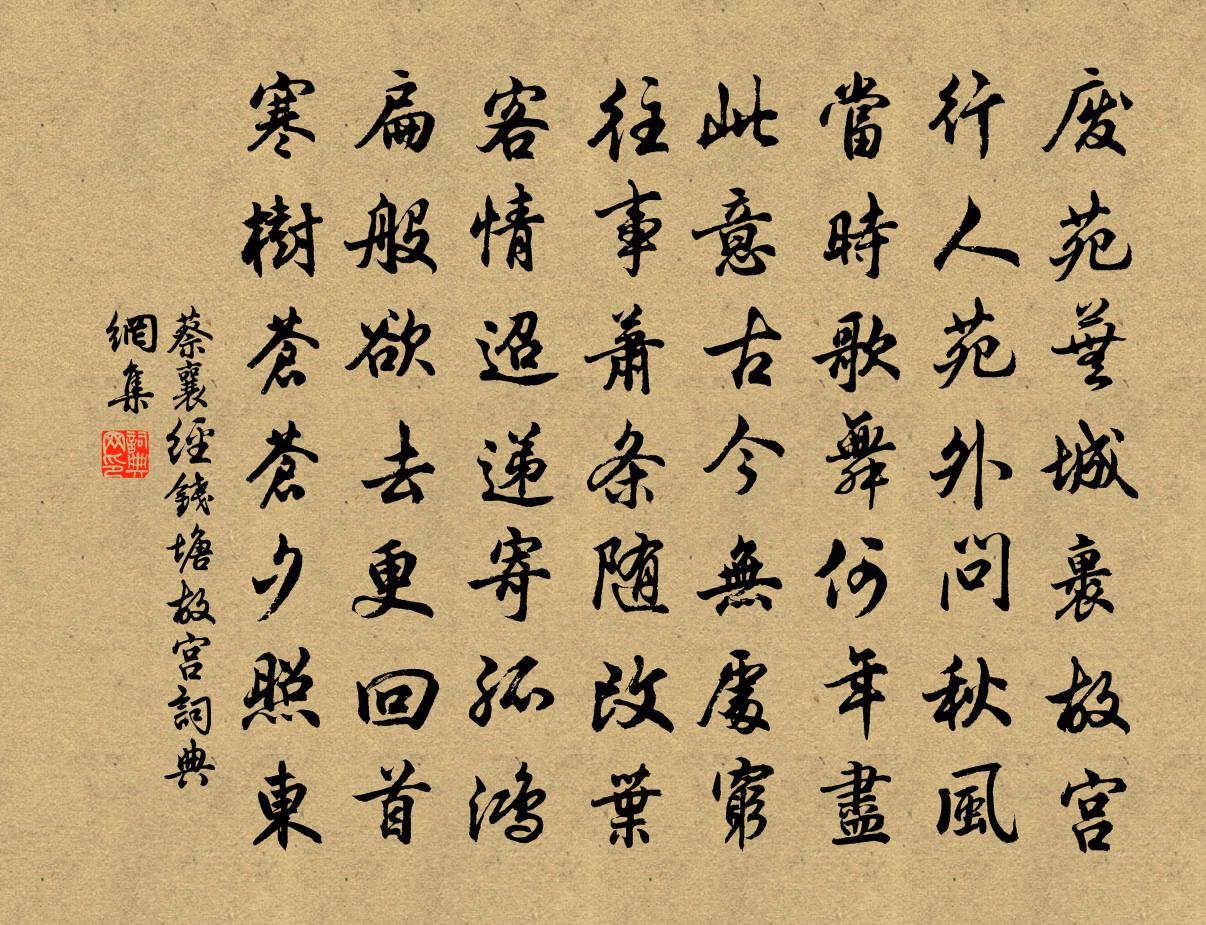 廢苑蕪城裏故宮
行人苑外問秋風
當時歌舞何年盡
此意古今無處窮
往事蕭条随改葉
客情迢遞寄孤鴻
扁般欲去更回首
寒樹蒼蒼夕照東
蔡襄經錢塘故宮詞典
網集
詞典網印